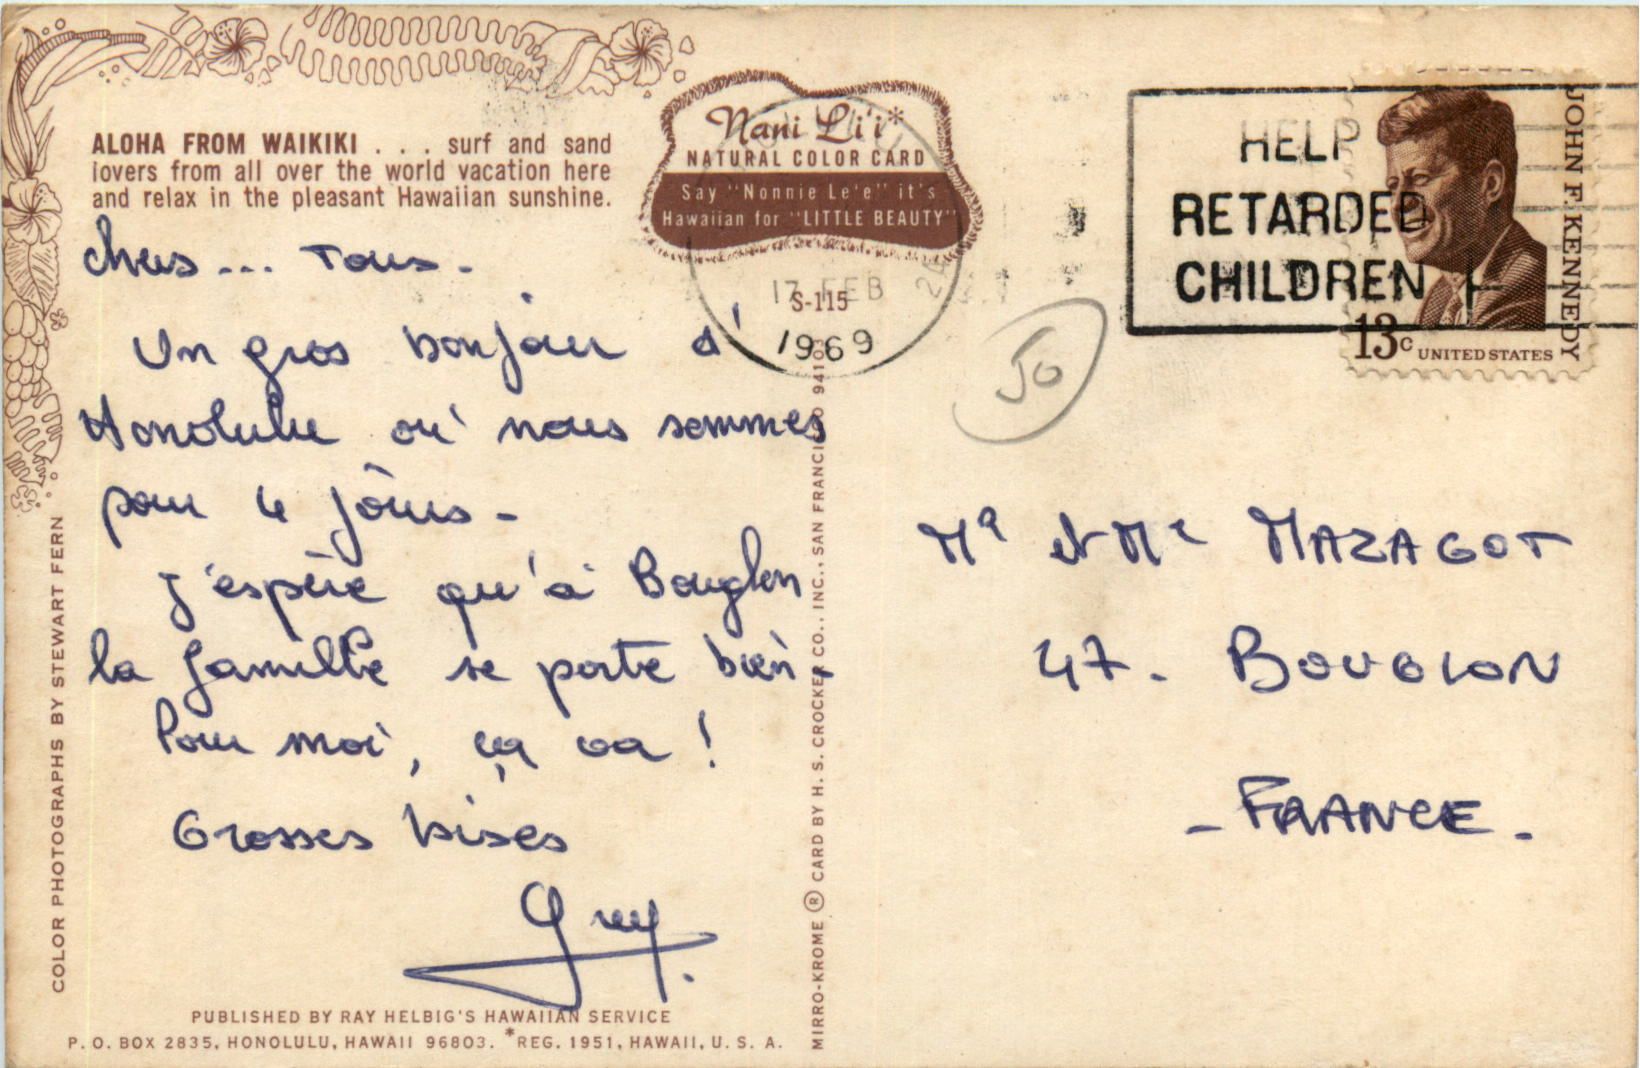 ALOHA FROM WAIKIKI . . . surf and sand
lovers from all over the world vacation here
and relax in the pleasant Hawaiian sunshine.
Nani Li'i*
NATURAL COLOR CARD
Say "Nonnie Le'e" it's
Hawaiian for "LITTLE BEAUTY"
S-115
17 FEB
1969
HELP
RETARDED
CHILDREN
JOHN F. KENNEDY
13c UNITED STATES
chers ... Tous.
Un gros bonjour d'
Honolulu où nous sommes
pour 4 jours -
J'espère qu'à Bouglon
la famille se porte bien -
Pour moi, ça va !
Grosses bises
Guy.
Mr et Me MAZAGOT
47. BOUGLON
- FRANCE -
COLOR PHOTOGRAPHS BY STEWART FERN
MIRRO-KROME ® CARD BY H. S. CROCKER CO., INC., SAN FRANCISCO 94100
PUBLISHED BY RAY HELBIG'S HAWAIIAN SERVICE
P. O. BOX 2835, HONOLULU, HAWAII 96803. *REG. 1951, HAWAII, U. S. A.